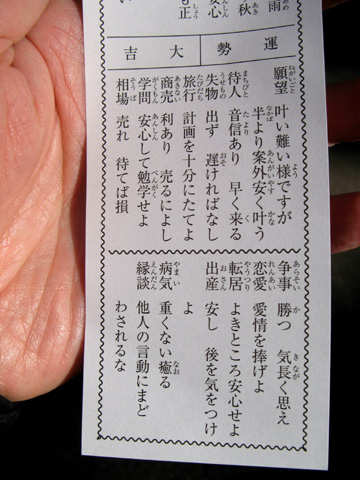 雨
秋
安心
も正
い
運勢
大吉
願望 叶い難い様ですが
半より案外安く叶う
待人 音信あり 早く来る
失物 出ず 遅ければなし
旅行 計画を十分にたてよ
商売 利あり 売るによし
学問 安心して勉学せよ
相場 売れ 待てば損
争事 勝つ 気長く思え
恋愛 愛情を捧げよ
転居 よきところ安心せよ
出産 安し 後を気をつけ
よ
病気 重くない癒る
縁談 他人の言動にまど
わされるな